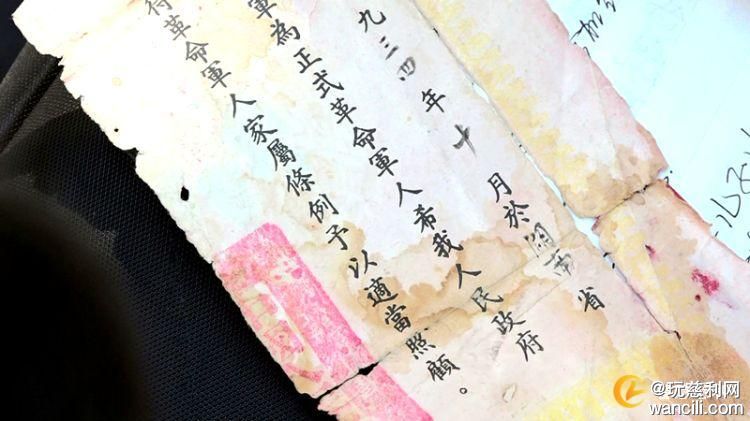 九三四年十月於湖南省
軍為正式革命軍人希我人民政府
待革命軍人家屬條例予以適當照顧。
@玩慈利网
wancili.com